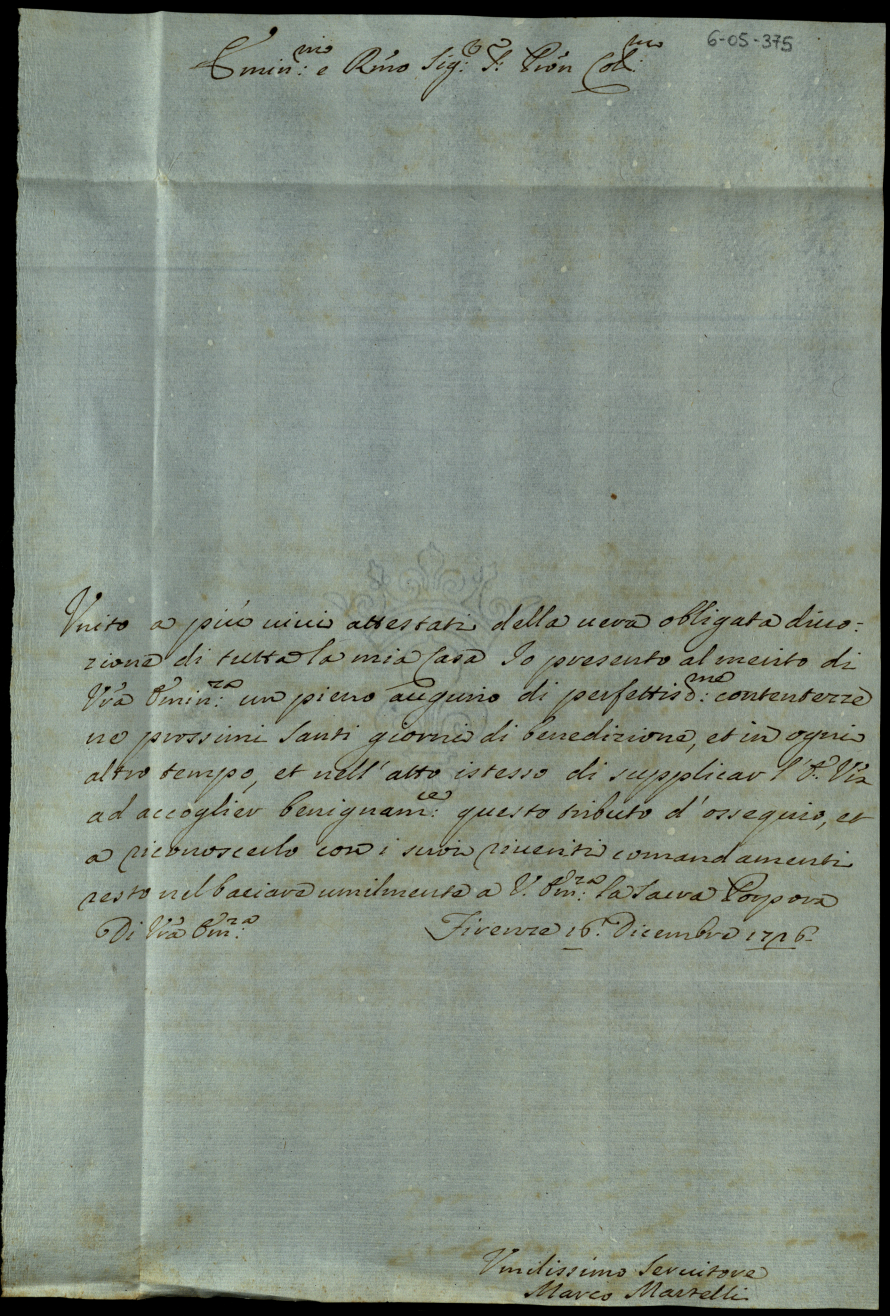 6-05-375
Emin:mo e Rmo Sig:re P: Pron Col:mo
Unito a più vivi attestati della vera obligata divo-
zione di tutta la mia Casa Io presento al merito di
Vra Emin:za un pieno augurio di perfettiss:me contentezze
ne prossimi Santi giorni di benedizione, et in ogni
altro tempo, et nell'atto istesso di supplicar l'E. Vra
ad accoglier benignam:te questo tributo d'ossequio, et
a riconoscerlo con i suoi riveriti comandamenti
resto nel baciare umilmente a V. Em:za la Sacra Porpora
Di Vra Em:za Firenze 16. Dicembre 1716.
Umilissimo Servitore
Marco Martelli